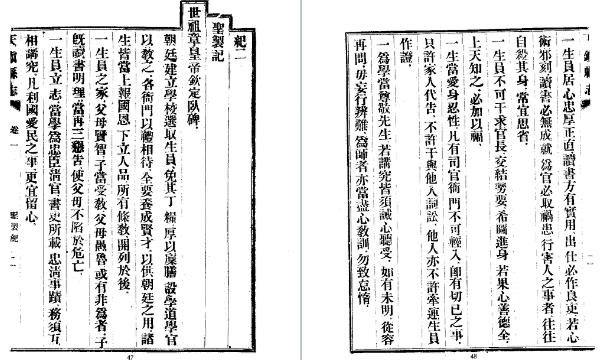 紀二
聖製記
世祖章皇帝欽定臥碑
朝廷建立學校選取生員免其丁糧厚以廩膳設學道學官
以教之各衙門以禮相待全要養成賢才以供朝廷之用諸
生皆當上報國恩下立人品所有條教開列於後
一生員之家父母賢智子當受教父母愚魯或有非為者子
既讀書明理當再三懇告使父母不陷於危亡
一生員立志當學為忠臣清官書史所載忠清事蹟務須互
相講究凡利國愛民之事更宜留心
天鎮縣志 卷一 聖製紀 二
47
一生員居心忠厚正直讀書方有實用出仕必作良吏若心
術邪刻讀書必無成就為官必取禍患行害人之事者往往
自殺其身常宜思省
一生員不可干求官長交結勢要希圖進身若果心善德全
上天知之必加以福
一生當愛身忍性凡有司官衙門不可輕入即有切己之事
只許家人代告不許干與他人詞訟他人亦不許牽連生員
作證
一為學當尊敬先生若講究皆須誠心聽受如有未明從容
再問毋妄行辨難為師者亦當盡心教訓勿致怠惰
48